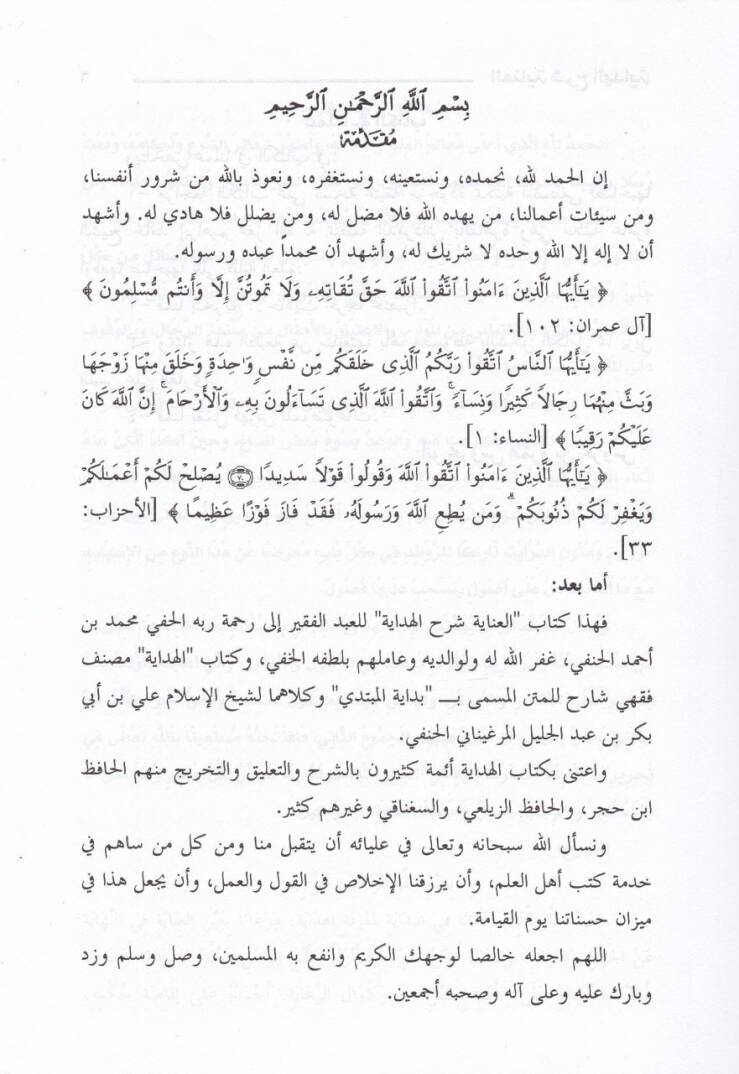 بِسْمِ ٱللَّهِ ٱلرَّحْمَٰنِ ٱلرَّحِيمِ
مقدمة
إن الحمد لله، نحمده، ونستعينه، ونستغفره، ونعوذ بالله من شرور أنفسنا،
ومن سيئات أعمالنا، من يهده الله فلا مضل له، ومن يضلل فلا هادي له. وأشهد
أن لا إله إلا الله وحده لا شريك له، وأشهد أن محمداً عبده ورسوله.
﴿ يَـٰٓأَيُّهَا ٱلَّذِينَ ءَامَنُوا۟ ٱتَّقُوا۟ ٱللَّهَ حَقَّ تُقَاتِهِۦ وَلَا تَمُوتُنَّ إِلَّا وَأَنتُم مُّسْلِمُونَ ﴾
[آل عمران: ١٠٢].
﴿ يَـٰٓأَيُّهَا ٱلنَّاسُ ٱتَّقُوا۟ رَبَّكُمُ ٱلَّذِى خَلَقَكُم مِّن نَّفْسٍ وَٰحِدَةٍ وَخَلَقَ مِنْهَا زَوْجَهَا
وَبَثَّ مِنْهُمَا رِجَالًا كَثِيرًا وَنِسَآءً ۚ وَٱتَّقُوا۟ ٱللَّهَ ٱلَّذِى تَسَآءَلُونَ بِهِۦ وَٱلْأَرْحَامَ ۚ إِنَّ ٱللَّهَ كَانَ
عَلَيْكُمْ رَقِيبًا ﴾ [النساء: ١].
﴿ يَـٰٓأَيُّهَا ٱلَّذِينَ ءَامَنُوا۟ ٱتَّقُوا۟ ٱللَّهَ وَقُولُوا۟ قَوْلًا سَدِيدًا ٧٠ يُصْلِحْ لَكُمْ أَعْمَـٰلَكُمْ
وَيَغْفِرْ لَكُمْ ذُنُوبَكُمْ ۗ وَمَن يُطِعِ ٱللَّهَ وَرَسُولَهُۥ فَقَدْ فَازَ فَوْزًا عَظِيمًا ﴾ [الأحزاب:
٣٣].
أما بعد:
فهذا كتاب "العناية شرح الهداية" للعبد الفقير إلى رحمة ربه الحفي محمد بن
أحمد الحنفي، غفر الله له ولوالديه وعاملهم بلطفه الخفي، وكتاب "الهداية" مصنف
فقهي شارح للمتن المسمى بـــ "بداية المبتدي" وكلاهما لشيخ الإسلام علي بن أبي
بكر بن عبد الجليل المرغيناني الحنفي.
واعتنى بكتاب الهداية أئمة كثيرون بالشرح والتعليق والتخريج منهم الحافظ
ابن حجر، والحافظ الزيلعي، والسغناقي وغيرهم كثير.
ونسأل الله سبحانه وتعالى في عليائه أن يتقبل منا ومن كل من ساهم في
خدمة كتب أهل العلم، وأن يرزقنا الإخلاص في القول والعمل، وأن يجعل هذا في
ميزان حسناتنا يوم القيامة.
اللهم اجعله خالصا لوجهك الكريم وانفع به المسلمين، وصل وسلم وزد
وبارك عليه وعلى آله وصحبه أجمعين.